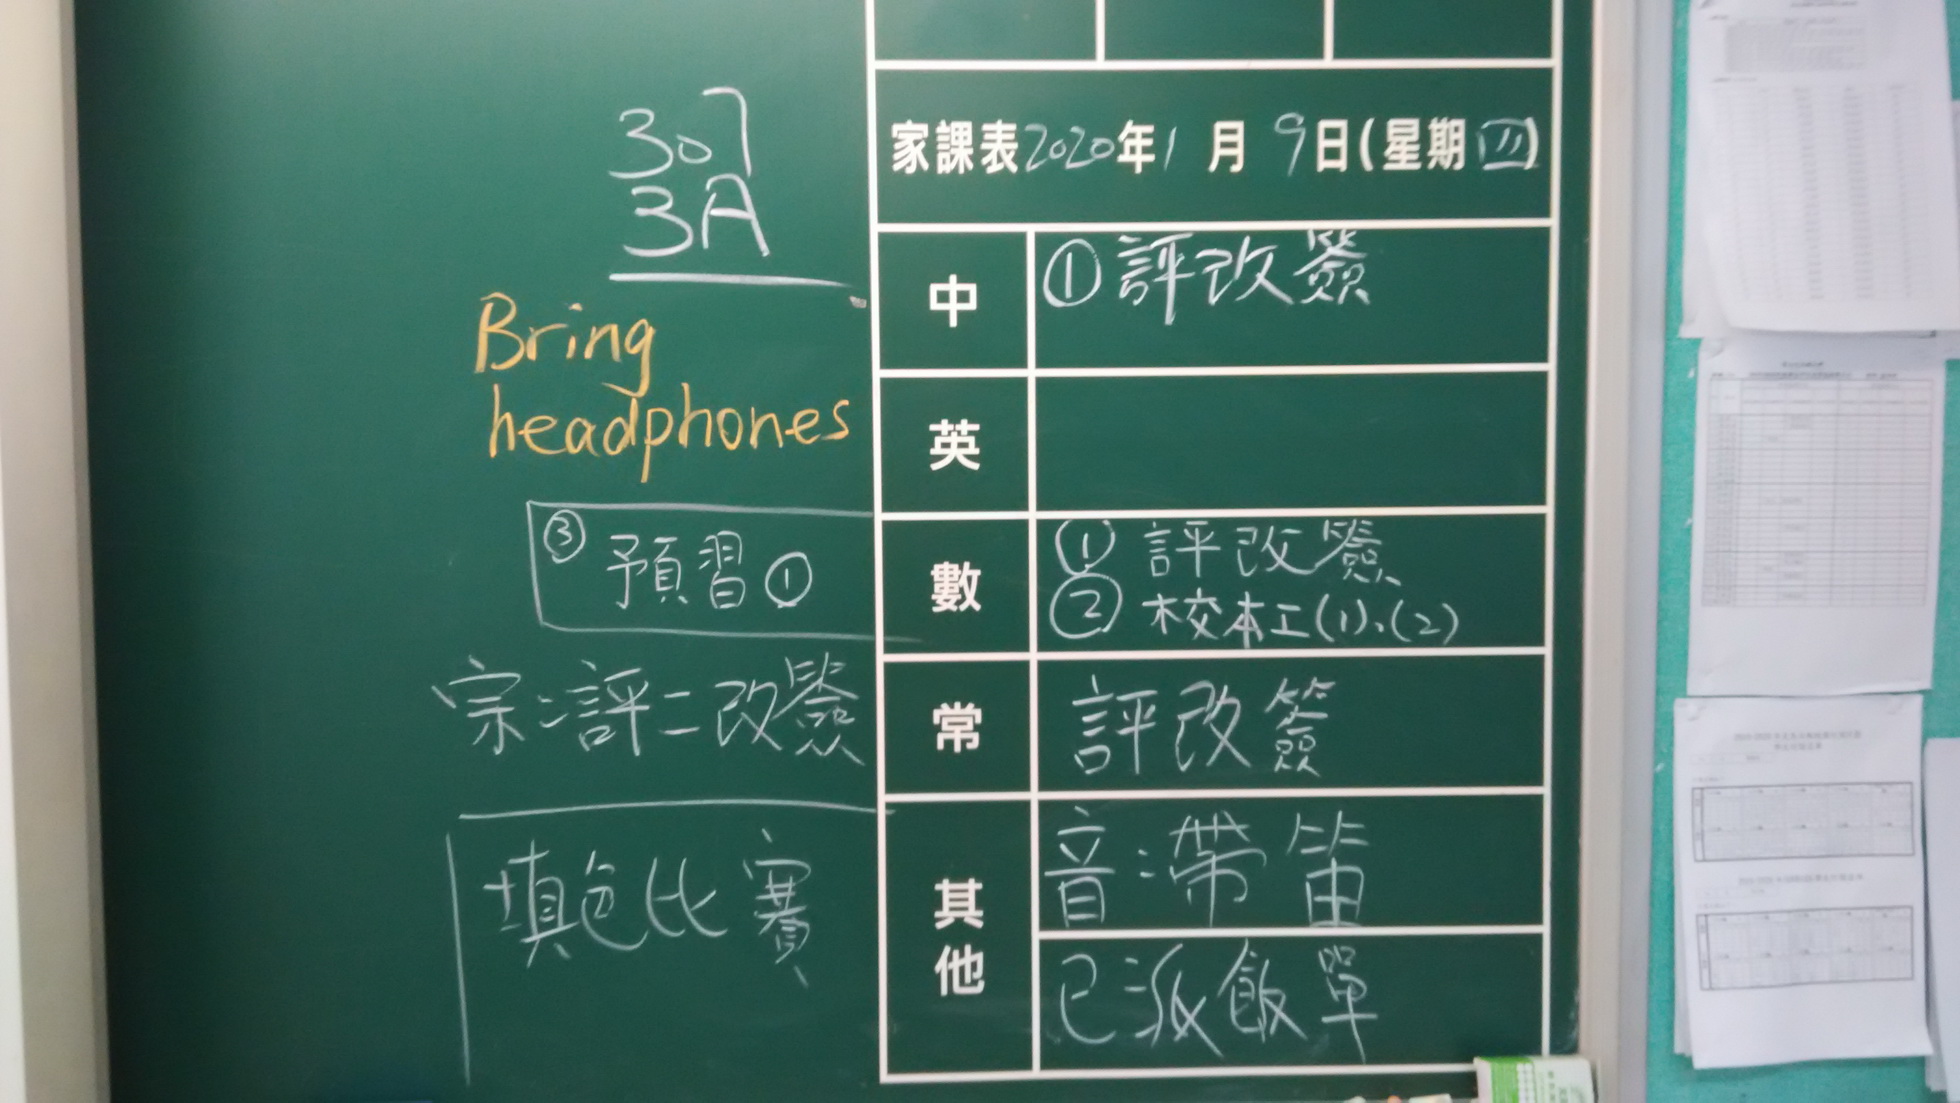 307
3A
Bring
headphones
③ 預習①
宗：評二改簽
填色比賽
家課表2020年1月9日(星期四)
中 ①評改簽
英
數 ①評改簽
②校本工(1)、(2)
常 評改簽
其他 音：帶笛
已派飯單